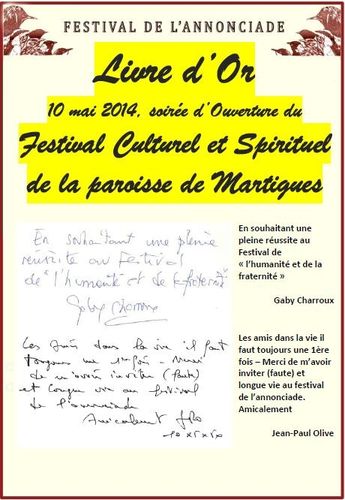 FESTIVAL DE L'ANNONCIADE
Livre d'Or
10 mai 2014, soirée d'Ouverture du
Festival Culturel et Spirituel
de la paroisse de Martigues
En souhaitant une pleine
réussite au Festival
de "l'humanité et de la fraternité"
Gaby Charroux
Les amis dans la vie il faut
toujours une 1ère fois - Merci
de m'avoir inviter (faute)
et longue vie au festival
de l'annonciade
Amicalement
En souhaitant une
pleine réussite au
Festival de
« l'humanité et de la
fraternité »
Gaby Charroux
Les amis dans la vie il
faut toujours une 1ère
fois – Merci de m'avoir
inviter (faute) et
longue vie au festival
de l'annonciade.
Amicalement
Jean-Paul Olive